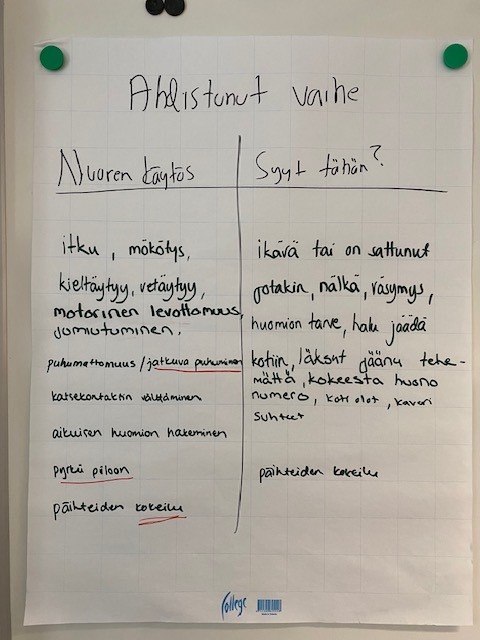 Ahdistunut vaihe
Nuoren käytös
itku, mökötys,
kieltäytyy, vetäytyy,
motorinen levottomuus,
jumiutuminen.
puhumattomuus / jatkuva puhuminen
katsekontaktin välttäminen
aikuisen huomion hakeminen
pyrkii piiloon
päihteiden kokeilu
Syyt tähän?
ikävä tai on sattunut
jotakin, nälkä, väsymys,
huomion tarve, halu jäädä
kotiin, läksyt jääny teke-
mättä, kokeesta huono
numero, koti olot, kaveri
suhteet
päihteiden kokeilu
College